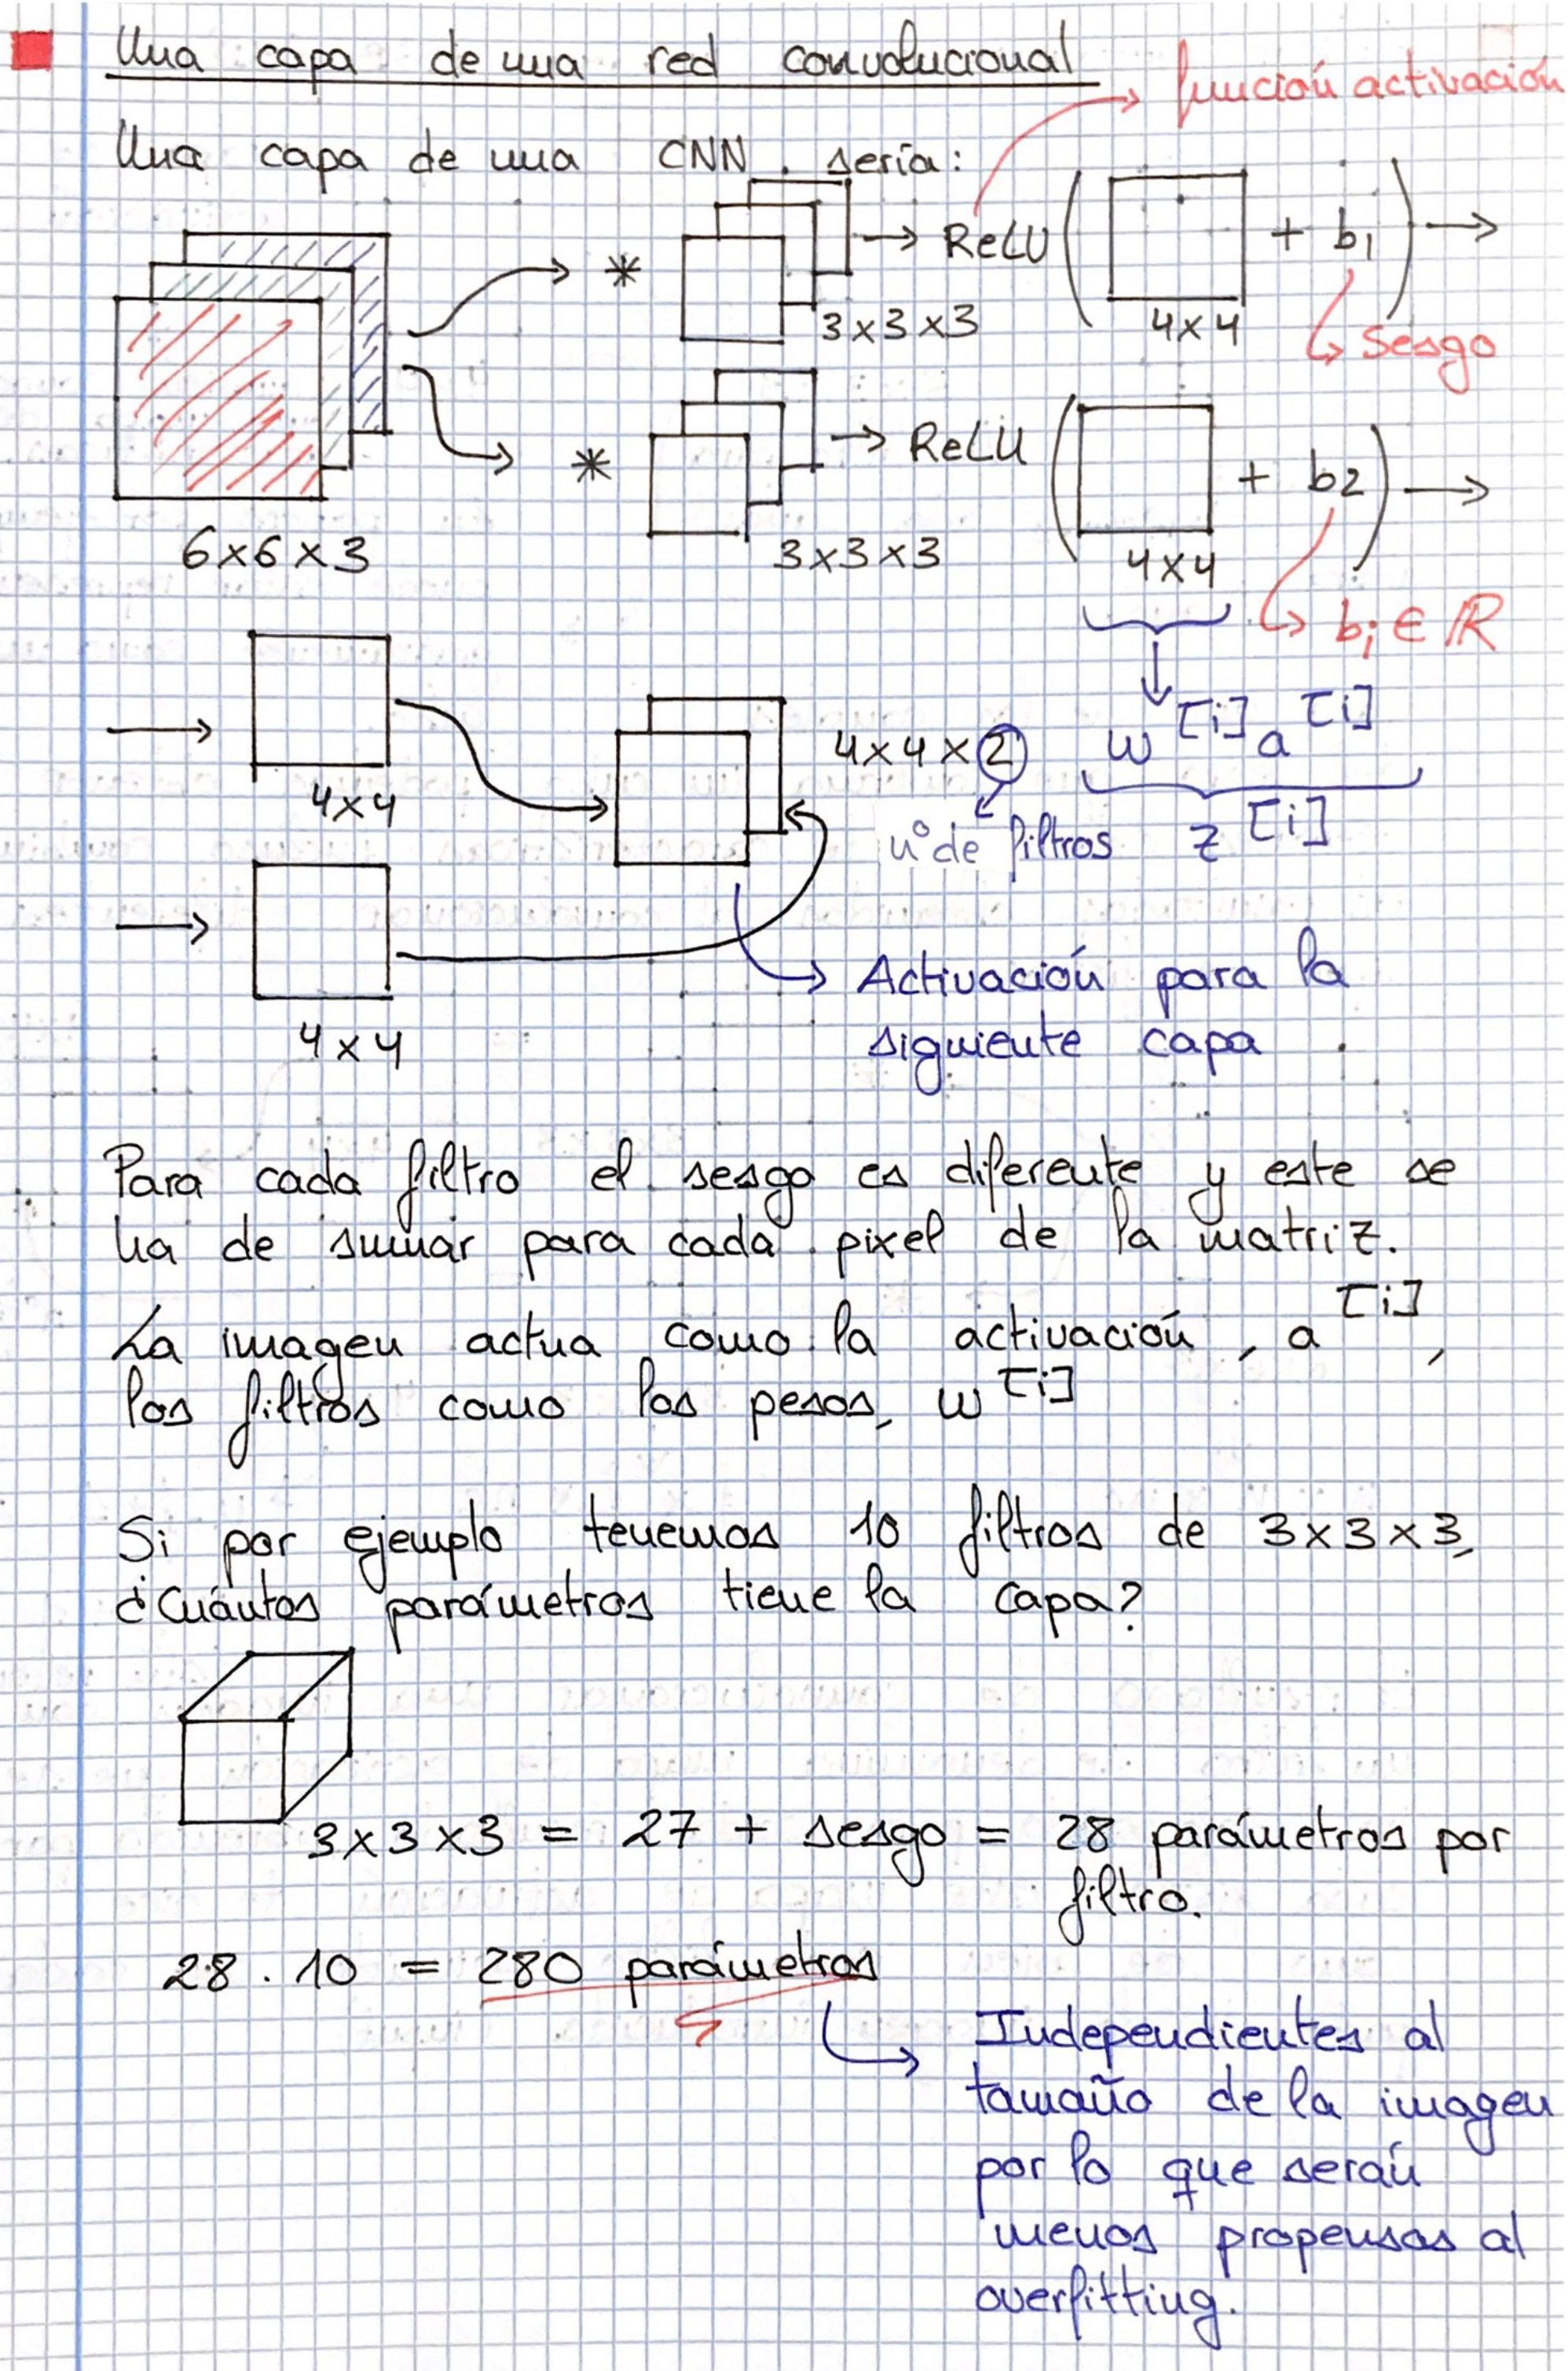 Una capa de una red convolucional
función activación
Una capa de una CNN. sería:
* → ReLU ( + b1 ) →
3x3x3
4x4
Sesgo
* → ReLU ( + b2 ) →
6x6x3
3x3x3
4x4
bi ∈ ℝ
→
4x4
4x4x2
w[i] a[i]
nº de filtros
z[i]
→
4x4
Activación para la
siguiente capa
Para cada filtro el sesgo es diferente y este se
ha de sumar para cada pixel de la matriz.
La imagen actua como la activación, a[i],
los filtros como los pesos, w[i]
Si por ejemplo tenemos 10 filtros de 3x3x3,
¿Cuántos parámetros tiene la capa?
3x3x3 = 27 + sesgo = 28 parámetros por
filtro.
28 . 10 = 280 parámetros
Independientes al
tamaño de la imagen
por lo que serán
menos propensas al
overfitting.